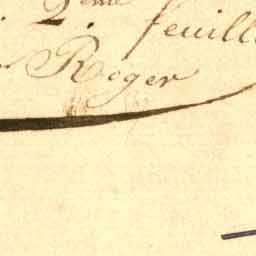 2eme feuill
Roger